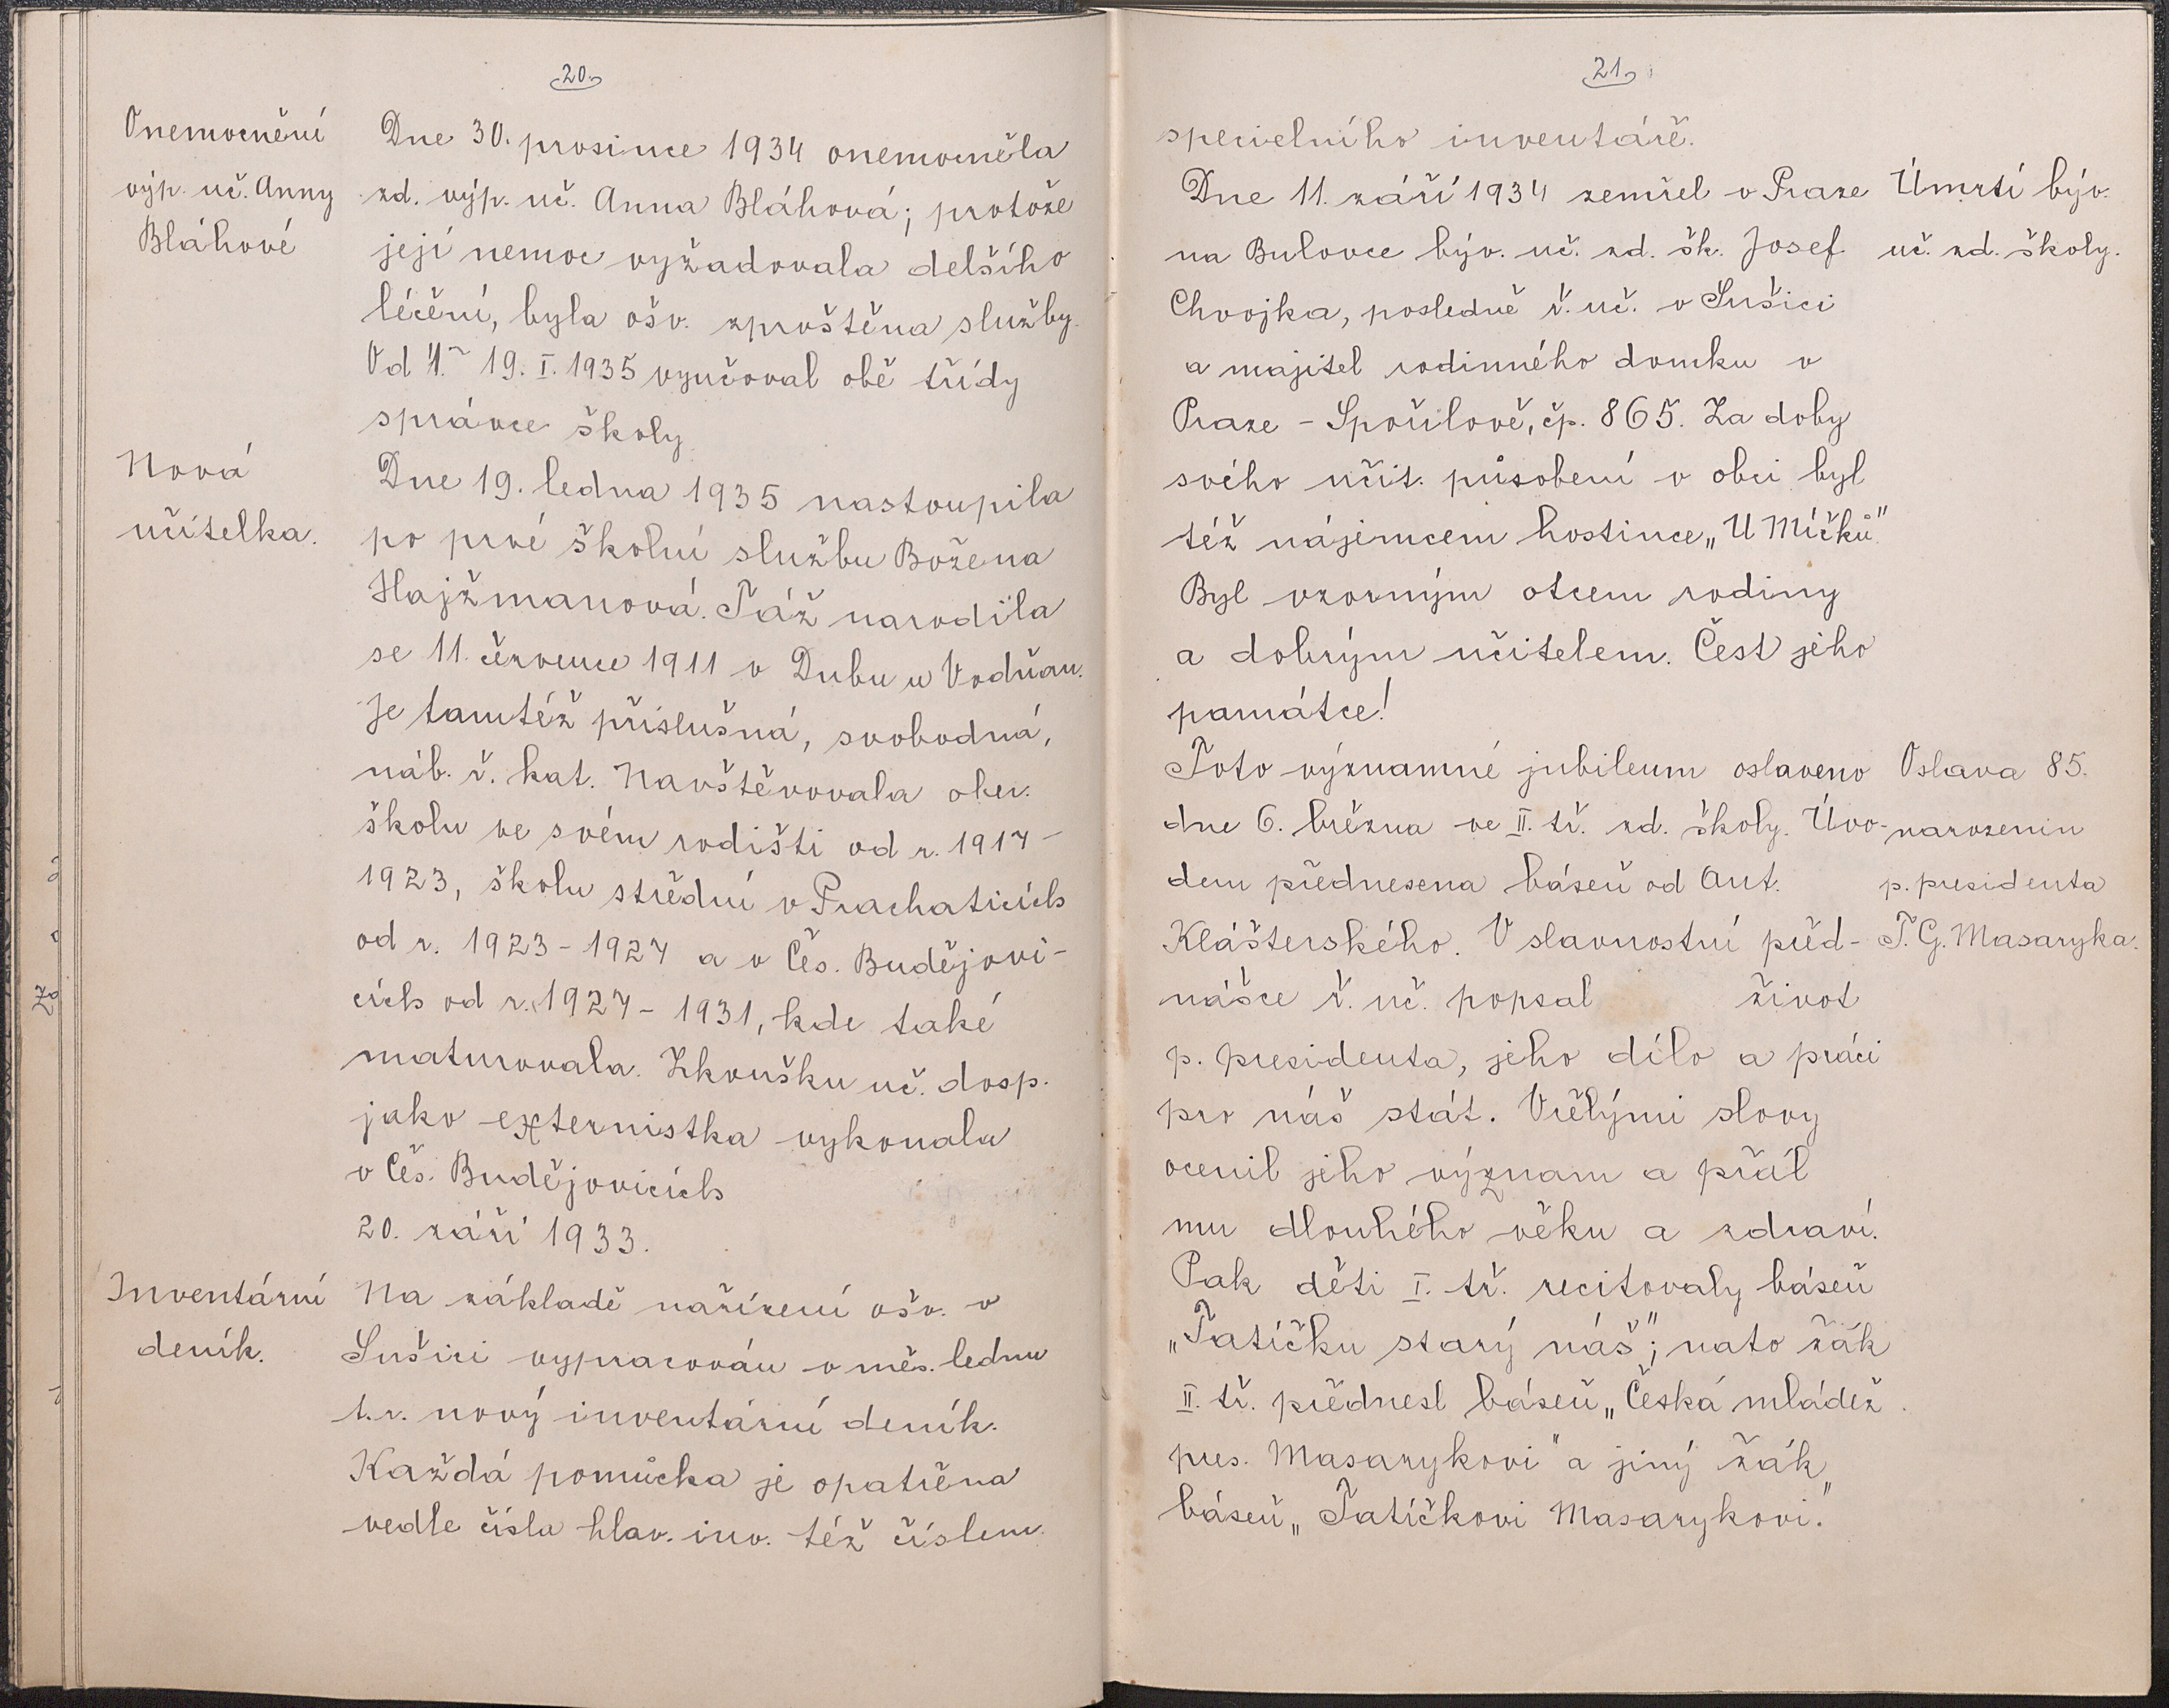 20.
Onemocnění
výp. uč. Anny
Bláhové
Dne 30. prosince 1934 onemocněla
zd. výp. uč. Anna Bláhová; protože
její nemoc vyžadovala delšího
léčení, byla ošv. zproštěna služby.
Od 4. - 19. I. 1935 vyučoval obě třídy
správce školy
Nová
učitelka.
Dne 19. ledna 1935 nastoupila
po prvé školní službu Božena
Hajžmanová. Táž narodila
se 11. července 1911 v Dubu u Vodňan.
Je tamtéž příslušná, svobodná,
náb. ř. kat. Navštěvovala obec.
školu ve svém rodišti od r. 1917-
1923, školu střední v Prachaticích
od r. 1923-1927 a v Čes. Budějovi-
cích od r. 1927-1931, kde také
maturovala. Zkoušku uč. dosp.
jako externistka vykonala
v Čes. Budějovicích
20. září 1933.
Inventární
deník.
Na základě nařízení ošv. v
Sušici vypracován v měs. lednu
t.r. nový inventární deník.
Každá pomůcka je opatřena
vedle čísla hlav. inv. též číslem
21.
specielního inventáře.
Dne 11. září 1934 zemřel v Praze
na Bulovce býv. uč. zd. šk. Josef
Chvojka, posledně ř. uč. v Sušici
a majitel rodinného domku v
Praze - Spořilově, čp. 865. Za doby
svého učit. působení v obci byl
též nájemcem hostince „U Míčků"
Byl vzorným otcem rodiny
a dobrým učitelem. Čest jeho
památce!
Úmrtí býv.
uč. zd. školy.
Toto významné jubileum oslaveno
dne 6. března ve II. tř. zd. školy. Úvo-
dem přednesena báseň od Ant.
Klášterského. V slavnostní před-
nášce ř. uč. popsal život
p. presidenta, jeho dílo a práci
pro náš stát. Vřelými slovy
ocenil jeho význam a přál
mu dlouhého věku a zdraví.
Pak děti I. tř. recitovaly báseň
„Tatíčku starý náš"; nato žák
II. tř. přednesl báseň „Česká mládež
pres. Masarykovi" a jiný žák
báseň „Tatíčkovi Masarykovi."
Oslava 85.
narozenin
p. presidenta
T. G. Masaryka.